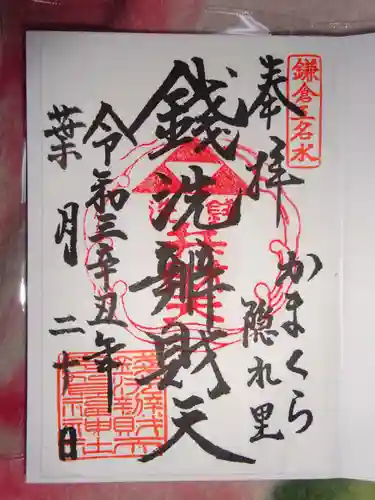 鎌倉五名水
奉拝
かまくら
隠れ里
銭洗辧財天
令和三辛丑年
葉月
二十日